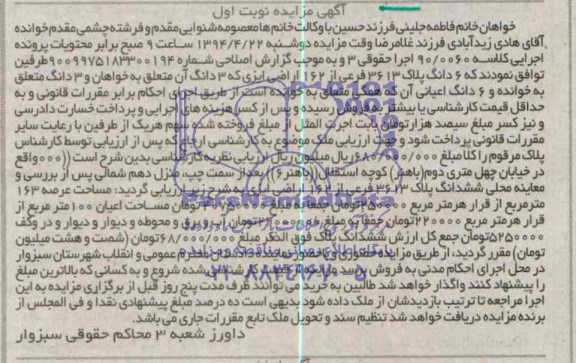 آگهی مزایده نوبت اول
خواهان خانم فاطمه جلینی فرزند حسین با وکالت خانم ها معصومه شنوایی مقدم و فرشته چشمی مقدم خوانده
آقای هادی زیدآبادی فرزند غلامرضا وقت مزایده دوشنبه ۱۳۹۴/۴/۲۲ ساعت ۹ صبح برابر محتویات پرونده
اجرایی کلاسه ۹۰/۰۰۶۰ اجرا حقوقی ۳ و به موجب گزارش اصلاحی شماره ۹۰۰۹۹۷۵۱۸۳۳۰۰۱۹۴ طرفین
توافق نمودند که ۶ دانگ پلاک ۳۶۱۳ فرعی از ۱۶۲ اراضی ایزی که ۳ دانگ آن متعلق به خواهان و ۳ دانگ متعلق
به خوانده و ۶ دانگ اعیانی آن که همگی متعلق به خوانده است از طریق اجرای احکام برابر مقررات قانونی و به
حداقل قیمت کارشناسی یا بیشتر به فروش رسیده و پس از کسر هزینه های اجرایی و پرداخت خسارت دادرسی
و نیز کسر مبلغ سیصد هزار تومان بابت اجرت المثل از مبلغ فروخته شده سهم هریک از طرفین با رعایت سایر
مقررات قانونی پرداخت شود و جهت ارزیابی ملک موضوع به کارشناسی ارجاع که پس از ارزیابی توسط کارشناس
پلاک مرقوم را کلا مبلغ ۶۸۰/۰۰۰/۰۰۰ ریال میلیون ریال ارزیابی نظریه کارشناسی بدین شرح است ((۰۰۰ واقع
در خیابان چهل متری دوم (باهنر) کوچه استقلال (باهنر ۶) بعد از سمت چپ، منزل دهم شمالی پس از بررسی و
معاینه محلی ششدانگ پلاک ۳۶۱۳ فرعی از ۱۶۲ اراضی ایزی به شرح زیر ارزیابی گردید: مساحت عرصه ۱۶۳
مترمربع از قرار هر متر مربع تومان مساحت اعیان ۱۰۰ متر مربع از
قرار هر متر مربع ۲۲۰۰۰۰ تومان جمعا به مبلغ تومان آب و برق و محوطه و دیوار و دیوار و در وکف
۵۲۵۰۰۰۰ تومان جمع کل ارزش ششدانگ پلاک فوق الذکر مبلغ ۶۸/۰۰۰/۰۰۰ تومان (شصت و هشت میلیون
تومان) مقرر گردید، از طریق مزایده حضوری و با حضور نماینده محترم عمومی و انقلاب شهرستان سبزوار
در محل اجرای احکام مدنی به فروش رسد شده شروع و به کسانی که بالاترین مبلغ
را پیشنهاد کنند واگذار خواهد شد طالبین به خرید می توانند ظرف مدت پنج روز قبل از برگزاری مزایده به این
اجرا مراجعه تا ترتیب بازدیدشان از ملک داده شود بدیهی است ده درصد مبلغ پیشنهادی نقدا و فی المجلس از
برنده مزایده دریافت خواهد شد تنظیم سند و تحویل ملک تابع مقررات جاری می باشد.
داورز شعبه ۳ محاکم حقوقی سبزوار